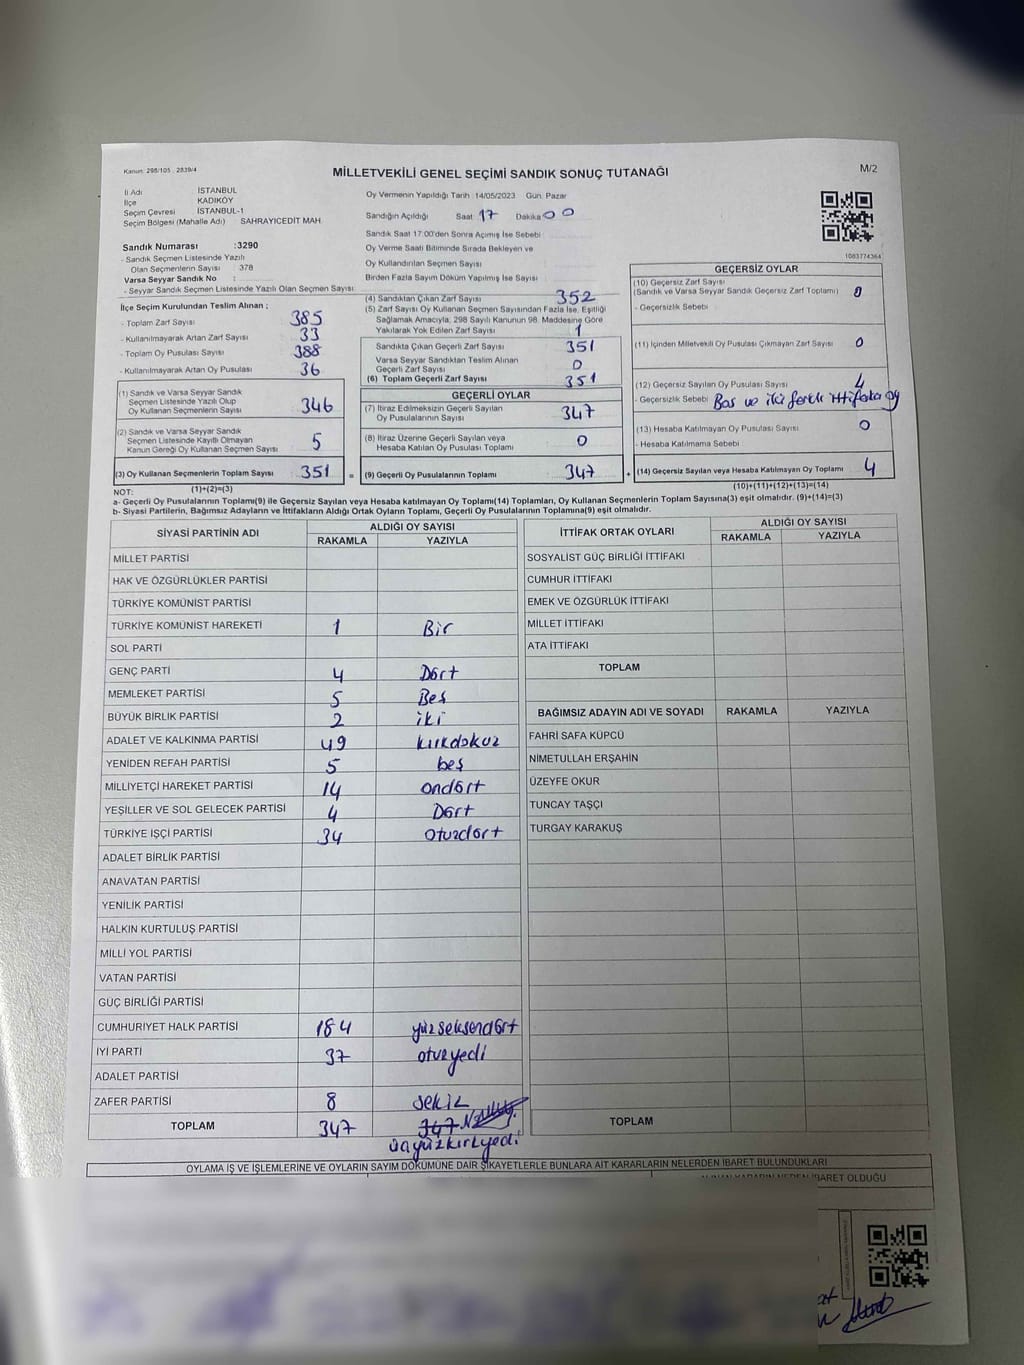 Kanun: 298/105 - 2839/4
MİLLETVEKİLİ GENEL SEÇİMİ SANDIK SONUÇ TUTANAĞI
M/2
İl Adı İSTANBUL
İlçe KADIKÖY
Seçim Çevresi İSTANBUL-1
Seçim Bölgesi (Mahalle Adı) SAHRAYICEDİT MAH
Sandık Numarası :3290
- Sandık Seçmen Listesinde Yazılı
Olan Seçmenlerin Sayısı : 378
Varsa Seyyar Sandık No :
- Seyyar Sandık Seçmen Listesinde Yazılı Olan Seçmen Sayısı:
İlçe Seçim Kurulundan Teslim Alınan ;
- Toplam Zarf Sayısı 385
- Kullanılmayarak Artan Zarf Sayısı 33
- Toplam Oy Pusulası Sayısı 388
- Kullanılmayarak Artan Oy Pusulası 36
(1) Sandık ve Varsa Seyyar Sandık
Seçmen Listesinde Yazılı Olup
Oy Kullanan Seçmenlerin Sayısı 346
(2) Sandık ve Varsa Seyyar Sandık
Seçmen Listesinde Kayıtlı Olmayan
Kanun Gereği Oy Kullanan Seçmen Sayısı 5
(3) Oy Kullanan Seçmenlerin Toplam Sayısı 351 =
(1)+(2)=(3)
Oy Vermenin Yapıldığı Tarih : 14/05/2023 Gün: Pazar
Sandığın Açıldığı Saat 17 Dakika 00
Sandık Saat 17:00'den Sonra Açılmış İse Sebebi :
Oy Verme Saati Bitiminde Sırada Bekleyen ve
Oy Kullandırılan Seçmen Sayısı
Birden Fazla Sayım Döküm Yapılmış İse Sayısı
(4) Sandıktan Çıkan Zarf Sayısı 352
(5) Zarf Sayısı Oy Kullanan Seçmen Sayısından Fazla İse, Eşitliği
Sağlamak Amacıyla, 298 Sayılı Kanunun 98. Maddesine Göre
Yakılarak Yok Edilen Zarf Sayısı 1
Sandıkta Çıkan Geçerli Zarf Sayısı 351
Varsa Seyyar Sandıktan Teslim Alınan
Geçerli Zarf Sayısı 0
(6) Toplam Geçerli Zarf Sayısı 351
GEÇERLİ OYLAR
(7) İtiraz Edilmeksizin Geçerli Sayılan
Oy Pusulalarının Sayısı 347
(8) İtiraz Üzerine Geçerli Sayılan veya
Hesaba Katılan Oy Pusulası Toplamı 0
(9) Geçerli Oy Pusulalarının Toplamı 347 +
1083774364
GEÇERSİZ OYLAR
(10) Geçersiz Zarf Sayısı
(Sandık ve Varsa Seyyar Sandık Geçersiz Zarf Toplamı) 0
- Geçersizlik Sebebi :
(11) İçinden Milletvekili Oy Pusulası Çıkmayan Zarf Sayısı 0
(12) Geçersiz Sayılan Oy Pusulası Sayısı 4
- Geçersizlik Sebebi Boş ve iki farklı ittifaka oy
(13) Hesaba Katılmayan Oy Pusulası Sayısı 0
- Hesaba Katılmama Sebebi
(14) Geçersiz Sayılan veya Hesaba Katılmayan Oy Toplamı 4
(10)+(11)+(12)+(13)=(14)
NOT:
a- Geçerli Oy Pusulalarının Toplamı(9) ile Geçersiz Sayılan veya Hesaba Katılmayan Oy Toplamı(14) Toplamları, Oy Kullanan Seçmenlerin Toplam Sayısına(3) eşit olmalıdır. (9)+(14)=(3)
b- Siyasi Partilerin, Bağımsız Adayların ve İttifakların Aldığı Ortak Oyların Toplamı, Geçerli Oy Pusulalarının Toplamına(9) eşit olmalıdır.
SİYASİ PARTİNİN ADI ALDIĞI OY SAYISI
RAKAMLA YAZIYLA
MİLLET PARTİSİ
HAK VE ÖZGÜRLÜKLER PARTİSİ
TÜRKİYE KOMÜNİST PARTİSİ
TÜRKİYE KOMÜNİST HAREKETİ 1 Bir
SOL PARTİ
GENÇ PARTİ 4 Dört
MEMLEKET PARTİSİ 5 Beş
BÜYÜK BİRLİK PARTİSİ 2 iki
ADALET VE KALKINMA PARTİSİ 49 kırkdokuz
YENİDEN REFAH PARTİSİ 5 beş
MİLLİYETÇİ HAREKET PARTİSİ 14 ondört
YEŞİLLER VE SOL GELECEK PARTİSİ 4 Dört
TÜRKİYE İŞÇİ PARTİSİ 34 otuzdört
ADALET BİRLİK PARTİSİ
ANAVATAN PARTİSİ
YENİLİK PARTİSİ
HALKIN KURTULUŞ PARTİSİ
MİLLİ YOL PARTİSİ
VATAN PARTİSİ
GÜÇ BİRLİĞİ PARTİSİ
CUMHURİYET HALK PARTİSİ 184 yüzseksendört
İYİ PARTİ 37 otuzyedi
ADALET PARTİSİ
ZAFER PARTİSİ 8 sekiz
TOPLAM 347 347
üçyüzkırkyedi
İTTİFAK ORTAK OYLARI ALDIĞI OY SAYISI
RAKAMLA YAZIYLA
SOSYALİST GÜÇ BİRLİĞİ İTTİFAKI
CUMHUR İTTİFAKI
EMEK VE ÖZGÜRLÜK İTTİFAKI
MİLLET İTTİFAKI
ATA İTTİFAKI
TOPLAM
BAĞIMSIZ ADAYIN ADI VE SOYADI RAKAMLA YAZIYLA
FAHRİ SAFA KÜPCÜ
NİMETULLAH ERŞAHİN
ÜZEYFE OKUR
TUNCAY TAŞÇI
TURGAY KARAKUŞ
TOPLAM
OYLAMA İŞ VE İŞLEMLERİNE VE OYLARIN SAYIM DÖKÜMÜNE DAİR ŞİKAYETLERLE BUNLARA AİT KARARLARIN NELERDEN İBARET BULUNDUKLARI
İBARET OLDUĞU